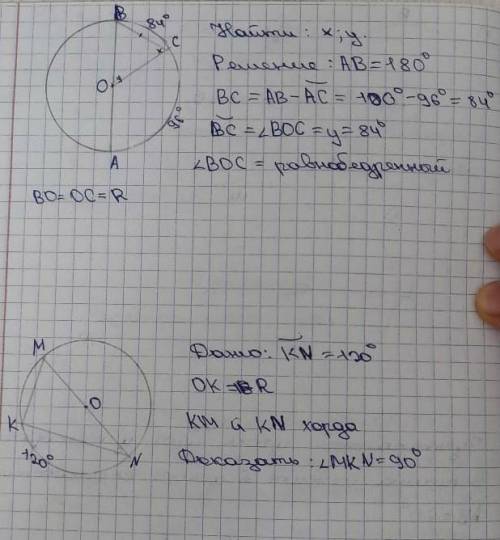 B
84°
C
x
O y
96°
A
Найти: x; y.
Решение: AB = 180°
BC = AB - AC = 180° - 96° = 84°
BC = ∠BOC = y = 84°
∠BOC = равнобедренный
BO = OC = R
M
O
K
120°
N
Дано: KN = 120°
OK = R
KM и KN хорда
Доказать: ∠MKN = 90°